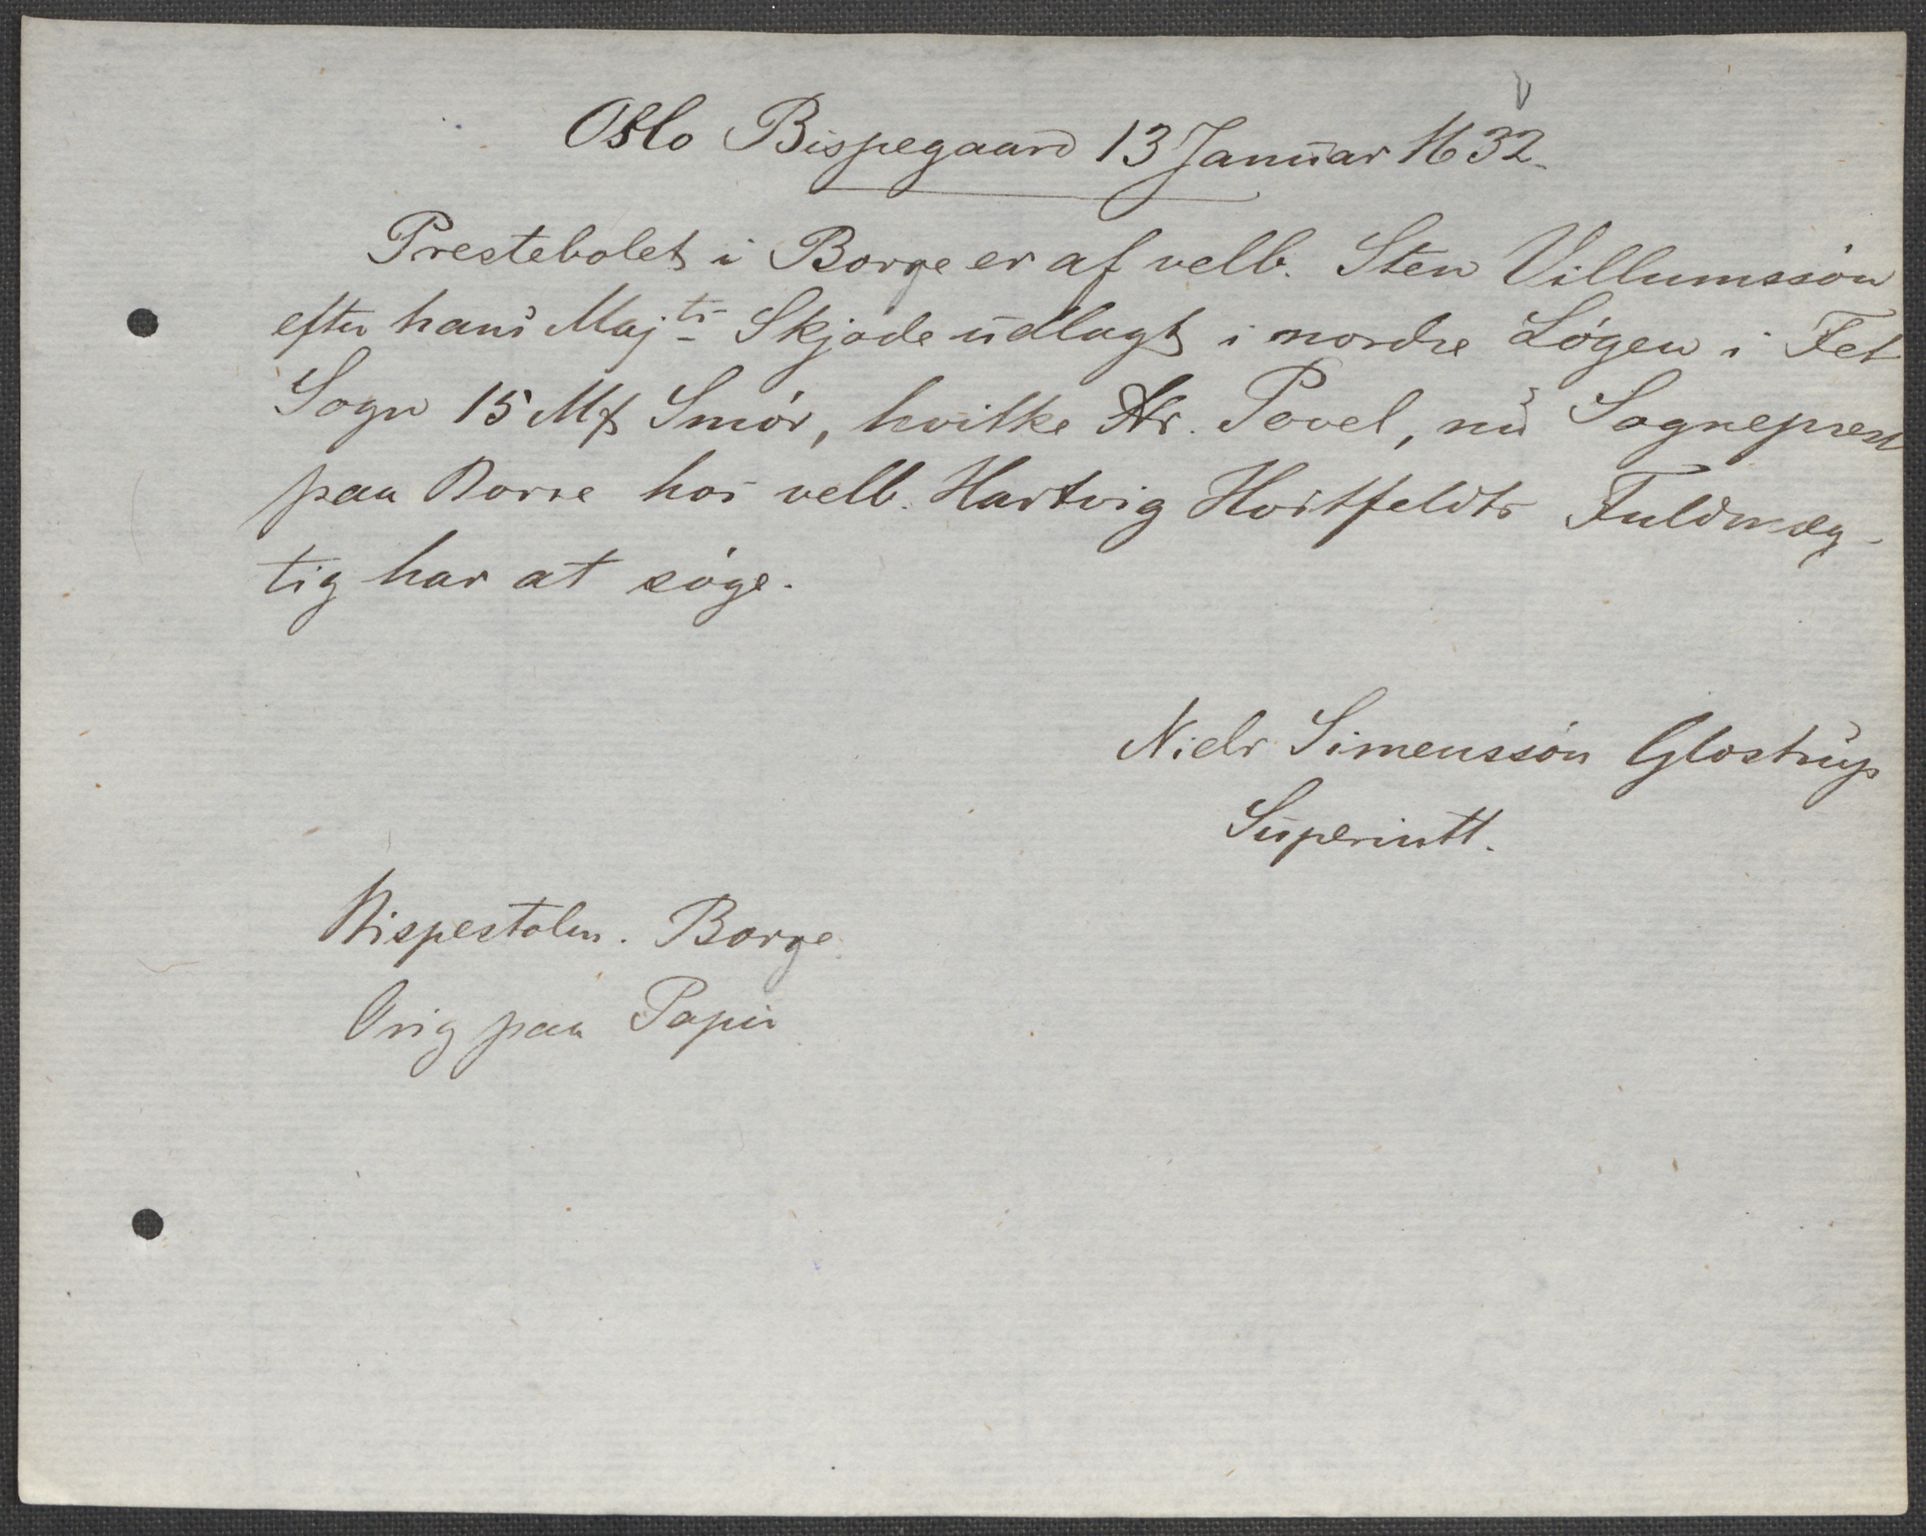 Oslo Bispegaard 13 Januar 1632.
Prestebolet i Borge er af velb. Sten Villumssön
efter hans Majts Skjøde udlagt i nordre Løgen i Fet
Sogn 15 Mk Smör, hvilke Hr. Povel, nu Sogneprest
paa Borre hos velb. Hartvig Hvitfeldts Fuldmæg-
tig har at søge.
Niels Simenssön Glostrup
Superintt.
Bispestolen. Borge.
Orig paa Papir